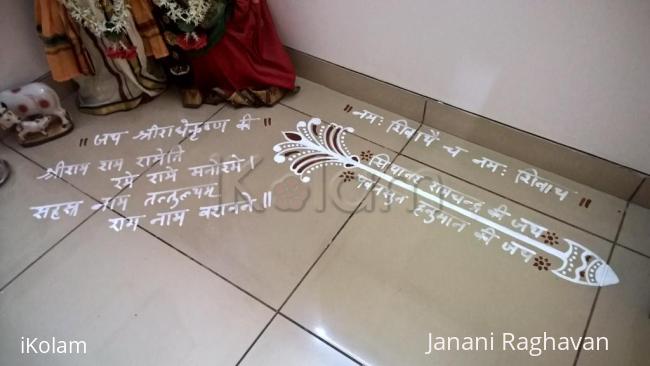 ॥ जय श्रीराधेकृष्ण की ॥
श्रीराम राम रामेति
रमे रामे मनोरमे।
सहस्त्र नाम तत्तुल्यम
राम नाम वरानने॥
॥ नमः शिवायै च नमः शिवाय ॥
सियावर रामचन्द्र की जय
की जय
Kolam
iKolam
Janani Raghavan